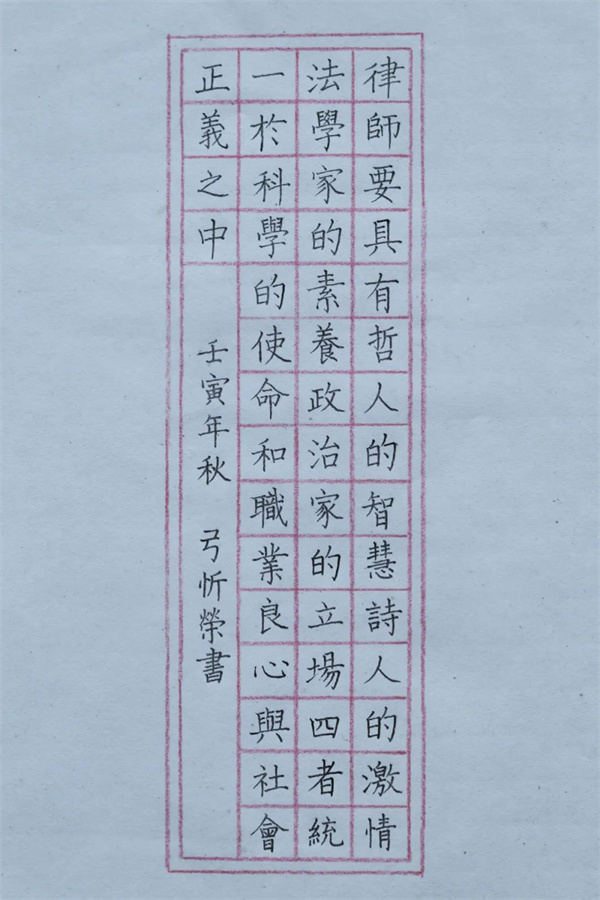 律師要具有哲人的智慧詩人的激情
法學家的素養政治家的立場四者統
一於科學的使命和職業良心與社會
正義之中
壬寅年秋 弓忻榮書